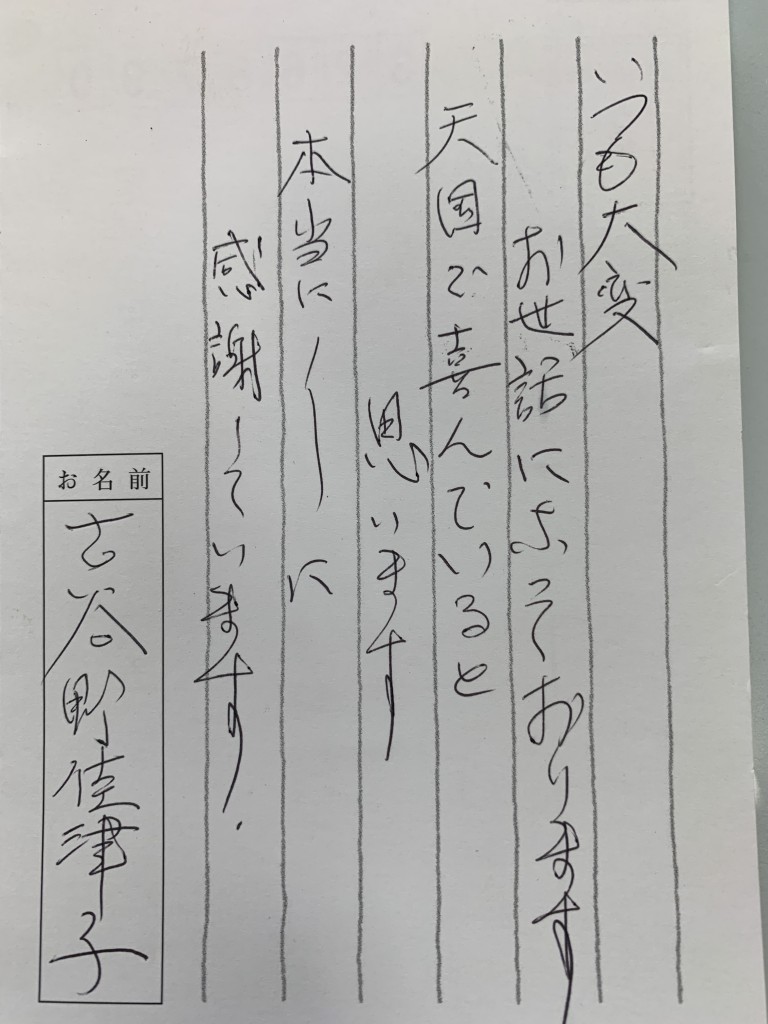 いつも大変
お世話になっております
天国で喜んでいると
思います
本当に〱に
感謝しています.
お名前
古谷野佳津子